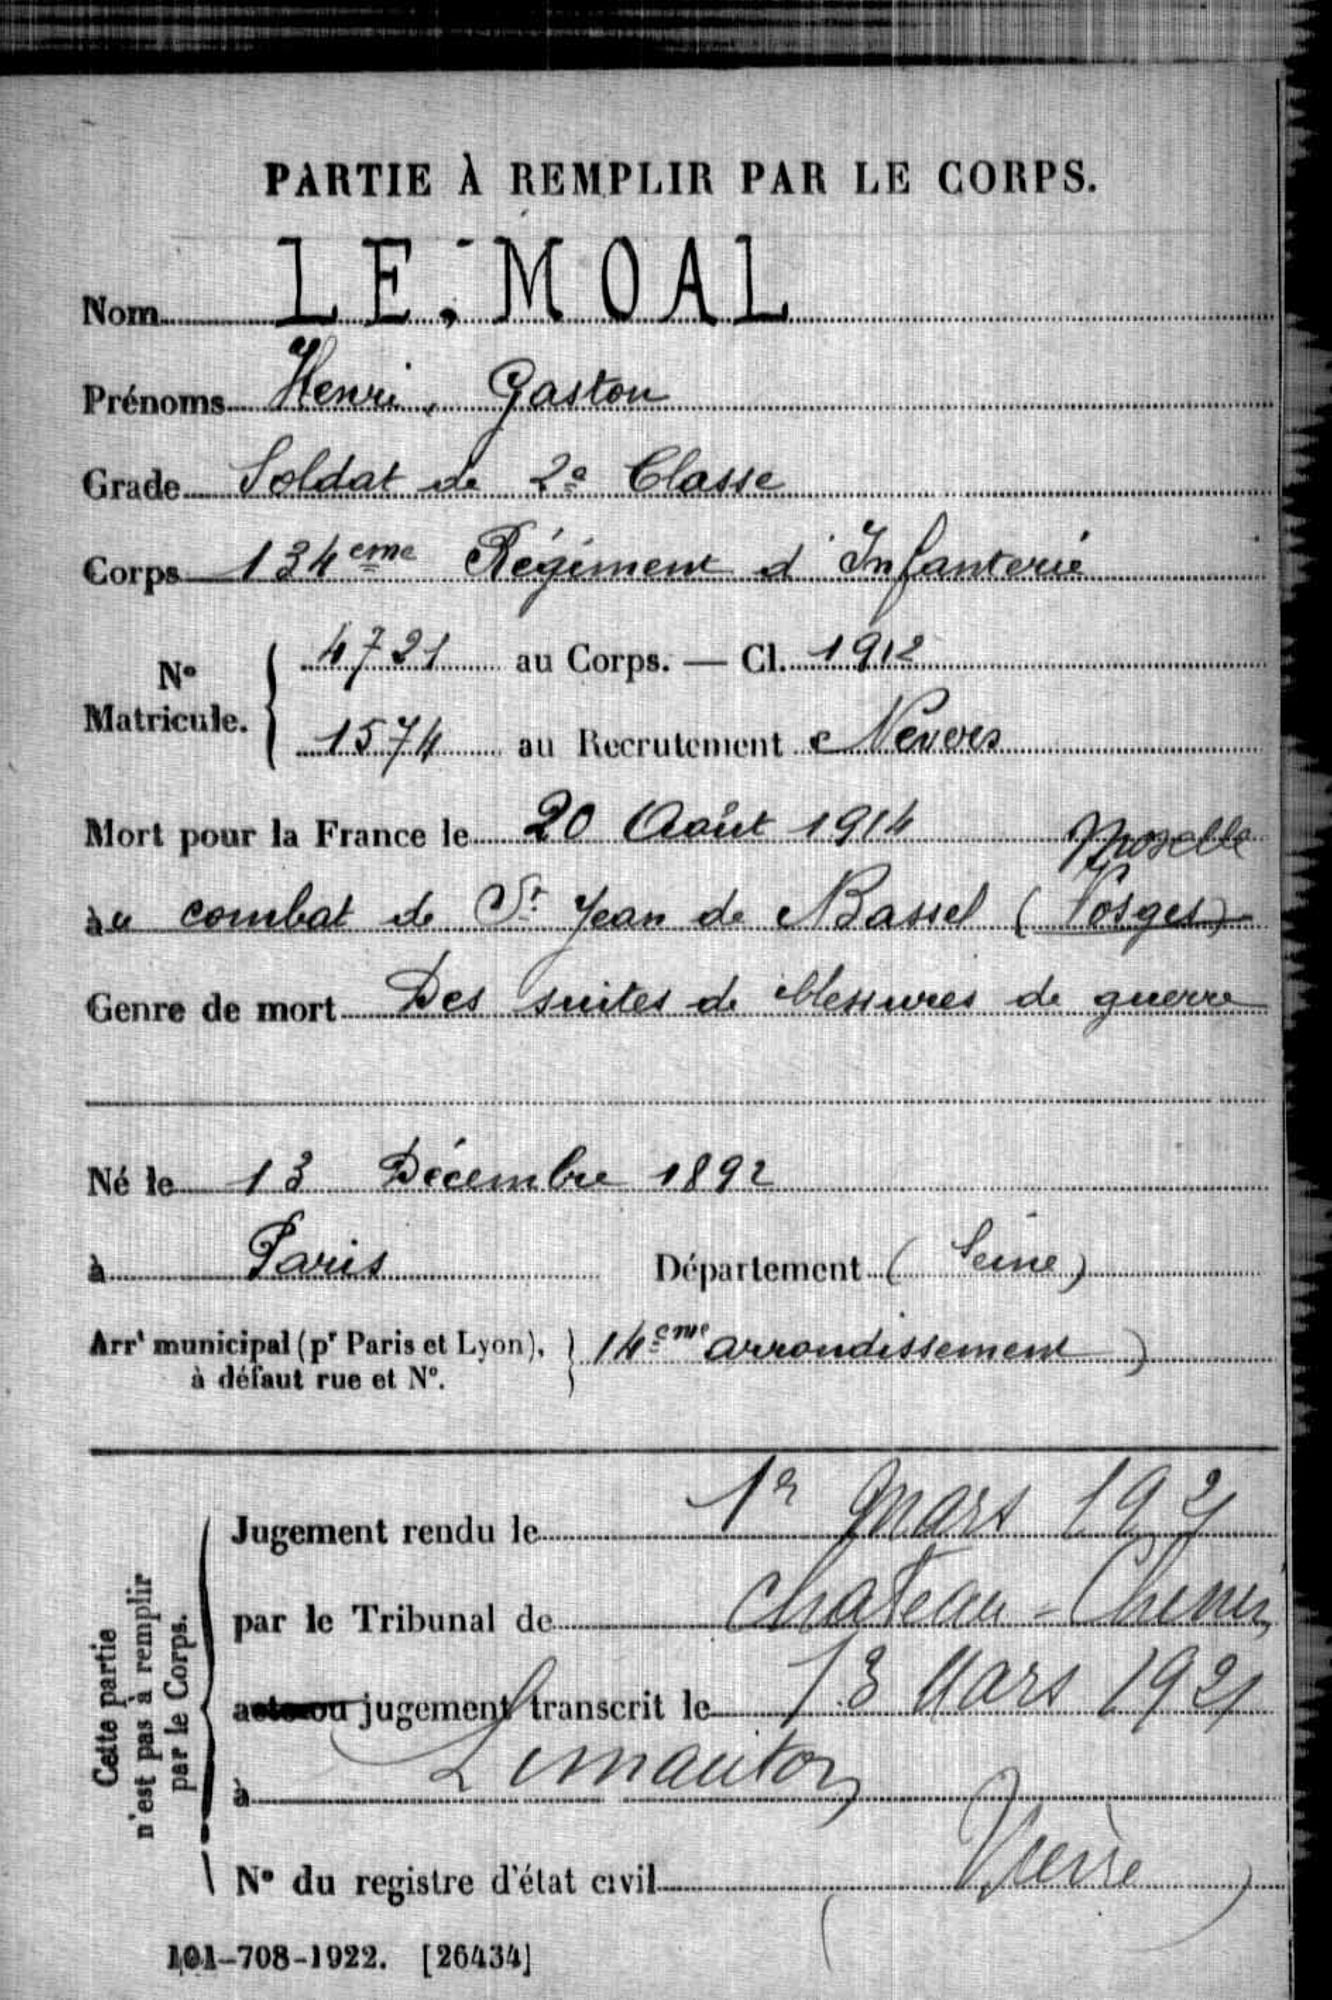 PARTIE À REMPLIR PAR LE CORPS.
Nom LE MOAL
Prénoms Henri, Gaston
Grade Soldat de 2e Classe
Corps 134eme Régiment d'Infanterie
No Matricule. 4721 au Corps. — Cl. 1912
1574 au Recrutement Nevers
Mort pour la France le 20 Août 1914
Moselle
au combat de St Jean de Bassel (Vosges)
Genre de mort Des suites de blessures de guerre
Né le 13 Décembre 1892
à Paris Département (Seine)
Arrt municipal (pr Paris et Lyon), à défaut rue et No. 14eme arrondissement )
Cette partie n'est pas à remplir par le Corps.
Jugement rendu le 1r Mars 1921
par le Tribunal de Chateau-Chinon
acte ou jugement transcrit le 13 Mars 1921
à Limanton
No du registre d'état civil (Nièvre)
101-708-1922. [26434]